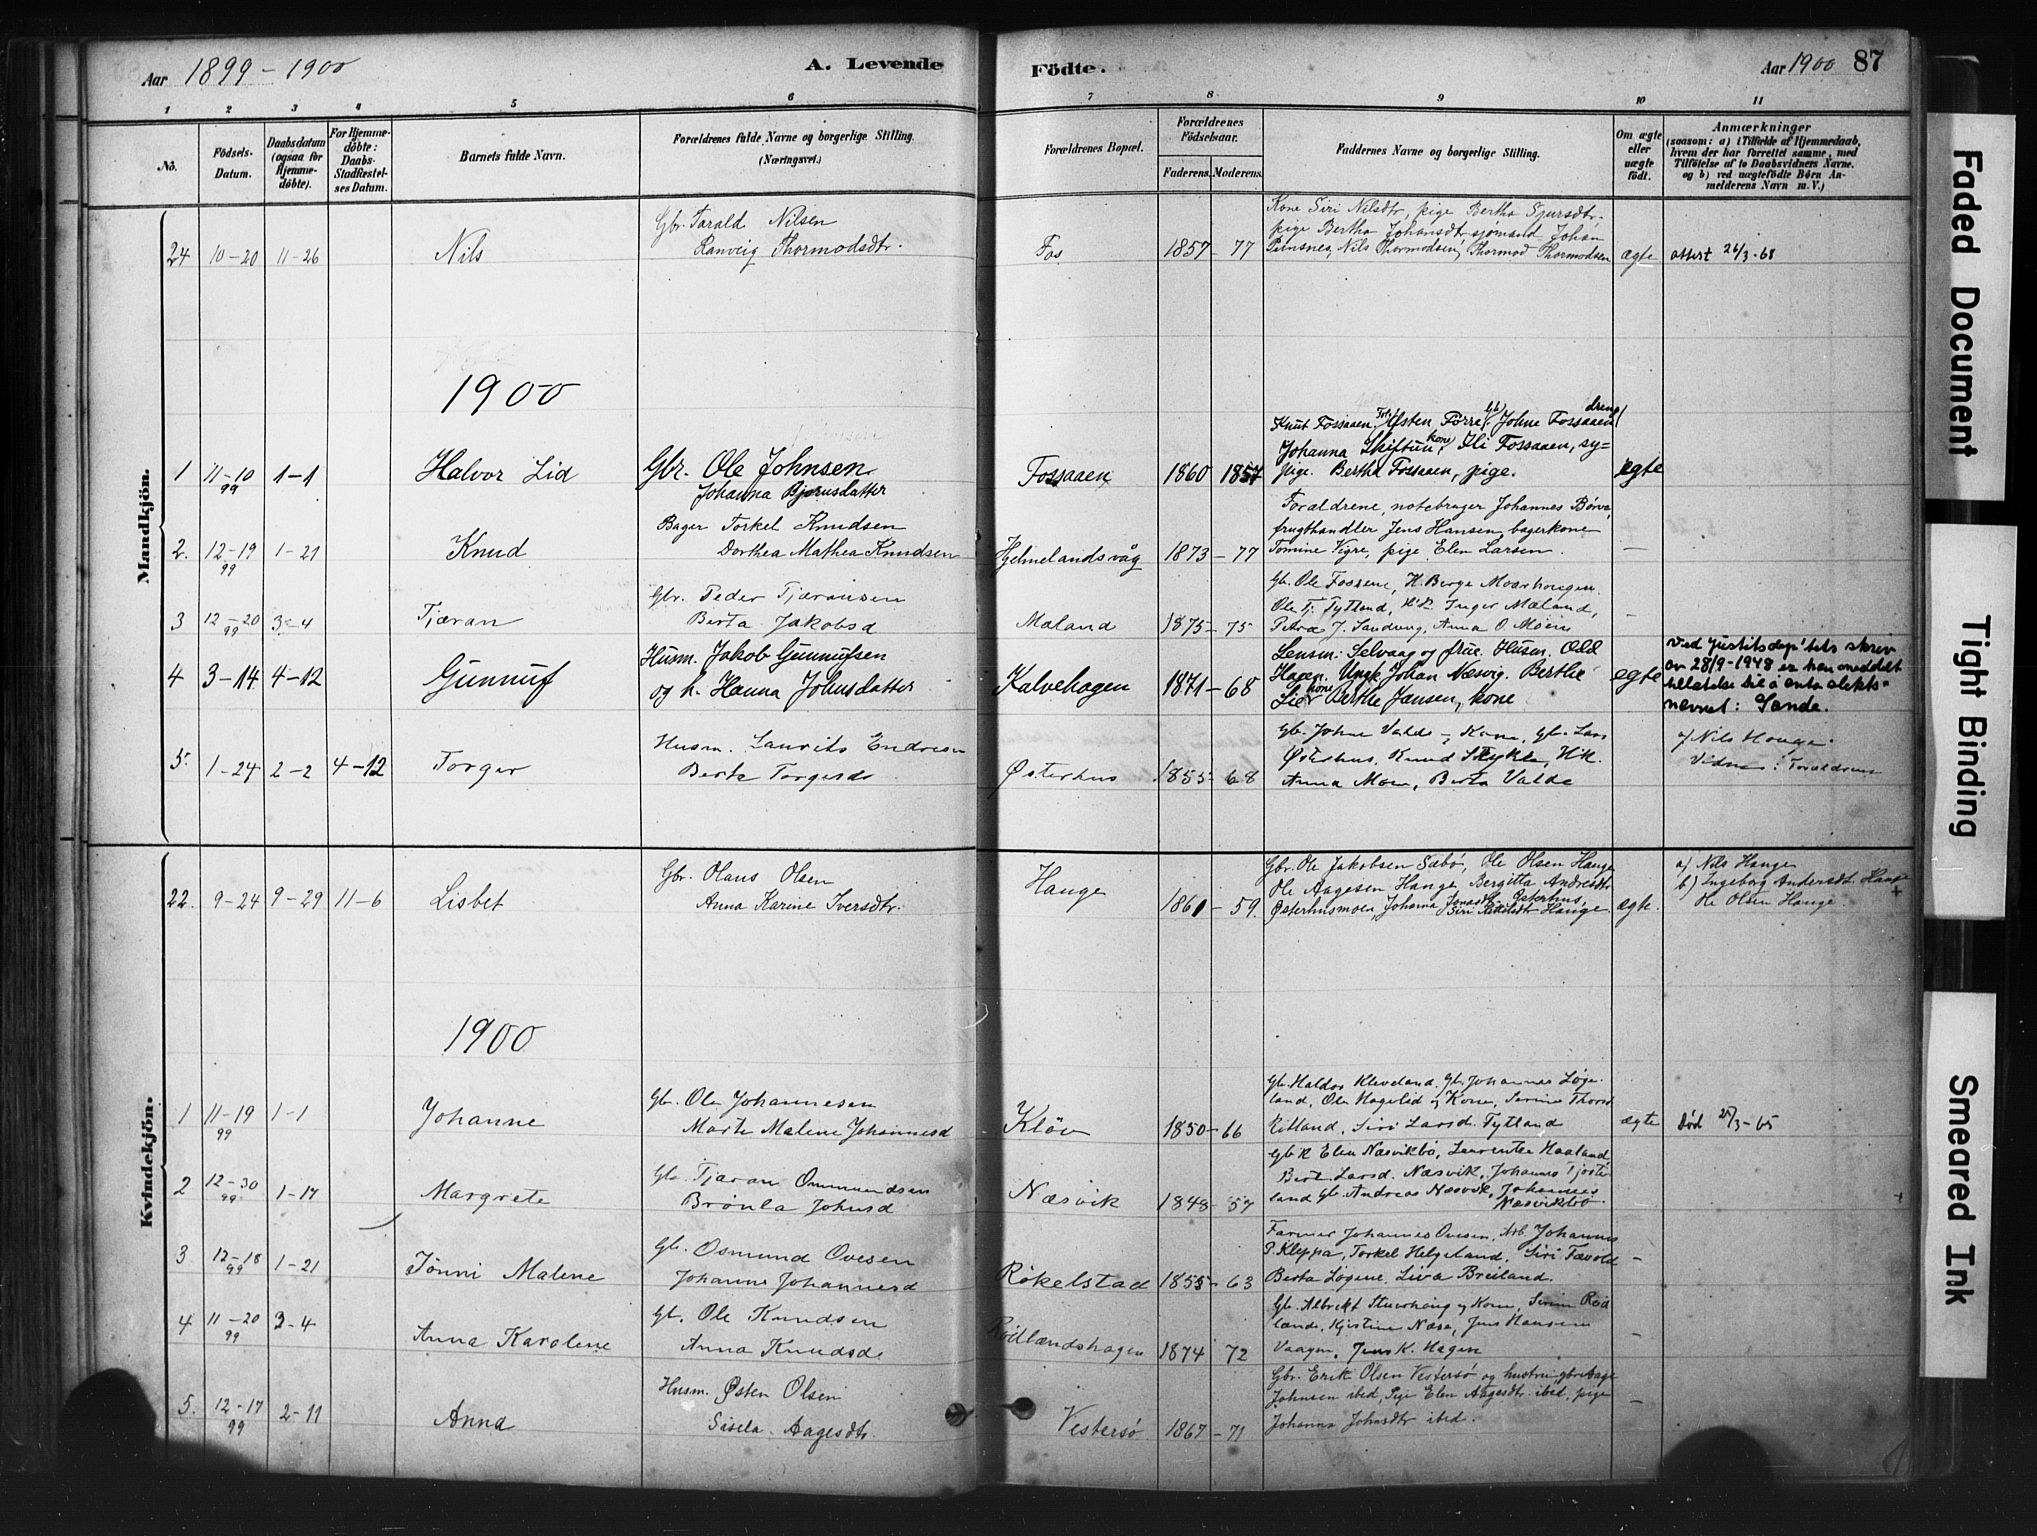 Aar 1899-1900
A. Levende Födte.
Aar 1900 87
1 2 3 4 5 6 7 8 9 10 11
No.
Födsels-Datum.
Daabsdatum (ogsaa for Hjemmedöbte).
For Hjemmedöbte: Daabs-Stadfæstelses Datum.
Barnets fulde Navn.
Forældrenes fulde Navne og borgerlige Stilling. (Næringsvei.)
Forældrenes Bopæl.
Forældrenes Födselsaar.
Faderens. Moderens.
Faddernes Navne og borgerlige Stilling.
Om ægte eller uægte födt.
Anmærkninger
(saasom: a) i Tilfælde af Hjemmedaab, hvem der har forrettet samme, med Tilföielse af to Daabsvidners Navne. og b) ved uægtefödte Börn Anmelderens Navn m. V.)
Mandkjön.
24 10-20 11-26 Nils
Gbr. Tarald Nilsen
Ranveig Thormodsdtr.
Fos 1857-77
Kone Siri Nilsdtr, pige Bertha Sjursdtr.
pige Bertha Johansdtr sjømænd Johan
Nils Thormodsen, Thormod Thormodsen
ægte attest 26/3-68
1900
1 11-10 99 1-1 Halvor Lid
Gbr. Ole Johnsen
Johanna Bjørnsdatter
Fossaaen 1860 1857
Knut Fossaaen, Østen Førre, Gb. Johne Fossaaen dreng
Johanna Skiftun, kone, Ili Fossaaen, sy-
pige. Bertha Fossaaen, pige.
ægte
2. 12-19 99 1-21 Knud
Bager Torkel Knudsen
Dorthea Mathea Knudsen
Hjelmelandsvåg 1873-77
Forældrene, notebruger Johannes Børve,
frugthandler Jens Hansen, bagerkone
Tomine Vigre, pige Elen Larsen.
—
3 12-20 99 3-4 Tjæran
Gbr. Peder Tjæransen
Berta Jakobsd
Mæland 1875-75
Gb. Ole Fossene, H. Berge
Ole Tj. Tytland, Inger Mæland,
Petra J. Sandvng, Anna O. Moen
—
4 3-14 4-12 Gunnuf
Husm. Jakob Gunnufsen
og h. Hanna Johnsdatter
Kalvehagen 1871-68
Lensm: Selvaag og frue. Husm. Odd
Hagen. Ungk. Johan Næsvig. Berthe
Lier kone Berthe Jansen, kone
ægte
Ved justitsdep'tets skriv
av 28/9-1948 er han meddelt
tillatelse til å anta slekts-
navnet: Sande.
5. 1-24 2-2 4-12 Torger
Husm. Laurits Endresen
Berta Torgersd
Østerhus 1855-68
Gb. Johne Valde og Kone, Gb. Lars
Østerhus, Knud Stykke, HK.
Anna Moen, Berta Valde
a/ Nils Hauge.
Vidner: Forældrene
Kvindekjön.
22. 9-24 9-29 11-6 Lisbet
Gbr. Olaus Olsen
Anna Karine Iversdtr.
Hauge 1861-59.
Gbr. Ole Jakobsen Sæbø, Ole Olsen Hauge
Ole Aagesen Hauge, Bergitta Andresdtr
Østerhusmoen, Johanna Jonasdtr Østerhus,
Siri Hauge
ægte.
a/ Nils Hauge
b) Ingeborg Andersdt. Hauge
Ole Olsen Hauge.
+
1900
1 11-19 99 1-1 Johanne
Gb. Ole Johannesen
Marte Malene Johannesd
Kløv 1850-66
Gb. Haldor Kleveland, Gb. Johannes Løge-
land, Ole Hagelid og Kone, Serine Thorsd
Ritland, Siri Larsd. Tytland
ægte Død 25/3-65
2 12-30 99 1-17 Margrete
Gb. Tjæran Ommundsen
Brønla Johnsd
Næsvik 1848-57
GbK Elen Næsvikbø, Laurentse Haaland
Berta Larsd. Næsvik, Johannes Tjøste-
land Gb. Andreas Næsvik, Johannes
Næsvikbø
+
3 12-18 99 1-21 Jønni Malene
Gb. Osmund Ovesen
Johanne Johannesd
Røkelstad 1855-63
Farmer Johannes Ovesen, Arb. Johannes
P. Kleppa, Torkel Helgeland, Siri Fævold
Berta Løgene, Liva Breiland.
—
4 11-20 99 3-4 Anna Karolene
Gb. Ole Knudsen
Anna Knudsd
Roitlandshagen 1874 72
Gb. Albrekt Stuvshaug og Kone, Sirin Roit
lande, Kjistine Næsa, Jens Hansen
Vaagen, Jens K. Hagen
—
5. 12-17 99 2-11 Anna
Husm. Østen Olsen
Sisela Aagesdtr.
Vestersø 1867-71
Gbr. Erik Olsen Vestersø og hustru, gbr Aage
Johnsen ibid, Pige Elen Aagesdtr. ibid, pige
Johanna Johnsdtr ibid.
—
Faded Document
Tight Binding
Smeared Ink